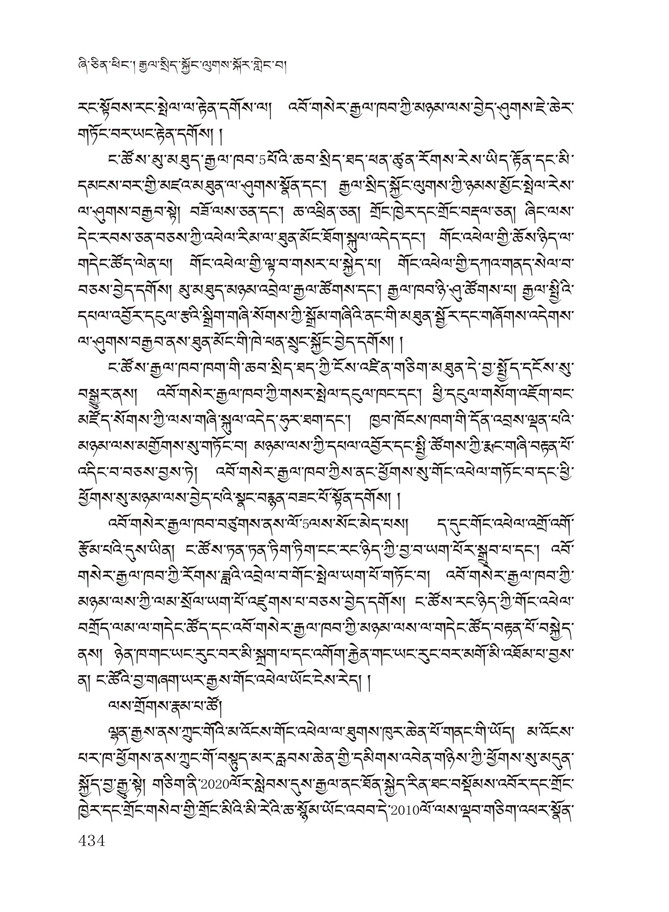 ཞི་ཅིན་ཕིང་། རྒྱལ་སྲིད་སྐྱོང་ལུགས་སྐོར་གླེང་བ།
རང་སྟོབས་རང་སྤེལ་ལ་རྟེན་དགོས་ལ། འབོ་གསེར་རྒྱལ་ཁབ་ཀྱི་མཉམ་ལས་བྱེད་ཤུགས་ཇེ་ཆེར་
གཏོང་བར་ཡང་རྟེན་དགོས། །
ང་ཚོས་མུ་མཐུད་རྒྱལ་ཁབ་5པོའི་ཆབ་སྲིད་ཐད་ཕན་ཚུན་རོགས་རེས་ཡིད་རྟོན་དང་མི་
དམངས་བར་གྱི་མཛའ་མཐུན་ལ་ཤུགས་སྣོན་དང༌། རྒྱལ་སྲིད་སྐྱོང་ལུགས་ཀྱི་ཉམས་མྱོང་སྤེལ་རེས་
ལ་ཤུགས་བརྒྱབ་སྟེ། བཟོ་ལས་ཅན་དང༌། ཆ་འཕྲིན་ཅན། གྲོང་ཁྱེར་དང་གྲོང་བརྡལ་ཅན། ཞིང་ལས་
དེང་རབས་ཅན་བཅས་ཀྱི་འཕེལ་རིམ་ལ་ཐུན་མོང་ཐོག་སྐུལ་འདེད་དང༌། གོང་འཕེལ་གྱི་ཆོས་ཉིད་ལ་
གདེང་ཚོད་ལེན་པ། གོང་འཕེལ་གྱི་ལྟ་བ་གསར་པ་སྐྱེད་པ། གོང་འཕེལ་གྱི་དཀའ་གནད་སེལ་བ་
བཅས་བྱེད་དགོས། མུ་མཐུད་མཉམ་འབྲེལ་རྒྱལ་ཚོགས་དང༌། རྒྱལ་ཁབ་ཉི་ཤུ་ཚོགས་པ། རྒྱལ་སྤྱིའི་
དཔལ་འབྱོར་དངུལ་རྩའི་སྒྲིག་གཞི་སོགས་ཀྱི་སྒྲོམ་གཞིའི་ནང་གི་མཐུན་སྦྱོར་དང་གཞོགས་འདེགས་
ལ་ཤུགས་བརྒྱབ་ནས་ཐུན་མོང་གི་ཁེ་ཕན་སྲུང་སྐྱོང་བྱེད་དགོས། །
ང་ཚོས་རྒྱལ་ཁབ་ཁག་གི་ཆབ་སྲིད་ཐད་ཀྱི་ངོས་འཛིན་གཅིག་མཐུན་དེ་བྱ་སྤྱོད་དངོས་སུ་
བསྒྱུར་ནས། འབོ་གསེར་རྒྱལ་ཁབ་ཀྱི་གསར་སྤེལ་དངུལ་ཁང་དང༌། ཕྱི་དངུལ་གསོག་འཇོག་བང་
མཛོད་སོགས་ཀྱི་ལས་གཞི་སྐུལ་འདེད་ཧུར་ཐག་དང༌། ཁྱབ་ཁོངས་ཁག་གི་དོན་འབྲས་ལྡན་པའི་
མཉམ་ལས་མགྱོགས་སུ་གཏོང་བ། མཉམ་ལས་ཀྱི་དཔལ་འབྱོར་དང་སྤྱི་ཚོགས་ཀྱི་རྨང་གཞི་བརྟན་པོ་
འདིང་བ་བཅས་བྱས་ཏེ། འབོ་གསེར་རྒྱལ་ཁབ་ཀྱིས་ནང་ཕྱོགས་སུ་གོང་འཕེལ་གཏོང་བ་དང་ཕྱི་
ཕྱོགས་སུ་མཉམ་ལས་བྱེད་པའི་སྣང་བརྙན་བཟང་པོ་སྟོན་དགོས། །
འབོ་གསེར་རྒྱལ་ཁབ་བཙུགས་ནས་ལོ་5ལས་སོང་མེད་པས། ད་དུང་གོང་འཕེལ་འགྲོ་འགོ་
རྩོམ་པའི་དུས་ཡིན། ང་ཚོས་ཏན་ཏན་ཏིག་ཏིག་ངང་རང་ཉིད་ཀྱི་བྱ་བ་ཡག་པོར་སྒྲུབ་པ་དང༌། འབོ་
གསེར་རྒྱལ་ཁབ་ཀྱི་རོགས་ཟླའི་འབྲེལ་བ་གོང་སྤེལ་ཡག་པོ་གཏོང་བ། འབོ་གསེར་རྒྱལ་ཁབ་ཀྱི་
མཉམ་ལས་ཀྱི་ལམ་སྲོལ་ཡག་པོ་འཛུགས་པ་བཅས་བྱེད་དགོས། ང་ཚོས་རང་ཉིད་ཀྱི་གོང་འཕེལ་
བགྲོད་ལམ་ལ་གདེང་ཚོད་དང་འབོ་གསེར་རྒྱལ་ཁབ་ཀྱི་མཉམ་ལས་ལ་གདེང་ཚོད་བརྟན་པོ་བསྐྱེད་
ནས། ཉེན་ཁ་གང་ཡང་རུང་བར་མི་སྐྲག་པ་དང་འགོག་རྐྱེན་གང་ཡང་རུང་བར་མགོ་མི་འཐོམ་པ་བྱས་
ན། ང་ཚོའི་བྱ་གཞག་ཡར་རྒྱས་གོང་འཕེལ་ཡོང་ངེས་རེད། །
ལས་གྲོགས་རྣམ་པ་ཚོ།
ལྷན་རྒྱས་ནས་ཀྲུང་གོའི་མ་འོངས་གོང་འཕེལ་ལ་ཐུགས་ཁུར་ཆེན་པོ་གནང་གི་ཡོད། མ་འོངས་
པར་ཁ་ཕྱོགས་ནས་ཀྲུང་གོ་བསྟུད་མར་རླབས་ཆེན་གྱི་དམིགས་འབེན་གཉིས་ཀྱི་ཕྱོགས་སུ་མདུན་
སྐྱོད་བྱ་རྒྱུ་སྟེ། གཅིག་ནི་2020ལོར་སླེབས་དུས་རྒྱལ་ནང་ཐོན་སྐྱེད་རིན་ཐང་བསྡོམས་འབོར་དང་གྲོང་
ཁྱེར་དང་གྲོང་གསེབ་ཀྱི་གྲོང་མིའི་མི་རེའི་ཆ་སྙོམ་ཡོང་འབབ་དེ་2010ལོ་ལས་ལྡབ་གཅིག་འཕར་སྣོན་
434